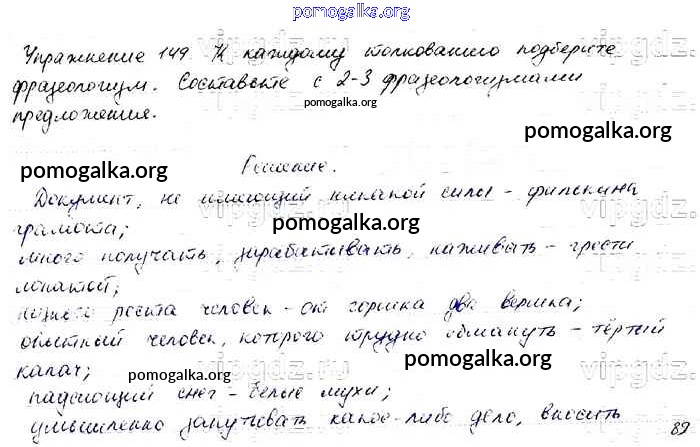 pomogalka.org
Упражнение 149. К каждому толкованию подберите
фразеологизм. Составьте с 2-3 фразеологизмами
pomogalka.org
предложения.
pomogalka.org
pomogalka.org
Решение.
Документ, не имеющий никакой силы - филькина
pomogalka.org
грамота;
много получать, зарабатывать, наживать - грести
лопатой;
pomogalka.org
низкого роста человек - от горшка два вершка;
опытный человек, которого трудно обмануть - тёртый
pomogalka.org
калач;
pomogalka.org
падающий снег - белые мухи;
умышленно запутывать какое-либо дело, вносить
89
vipgdz.ru